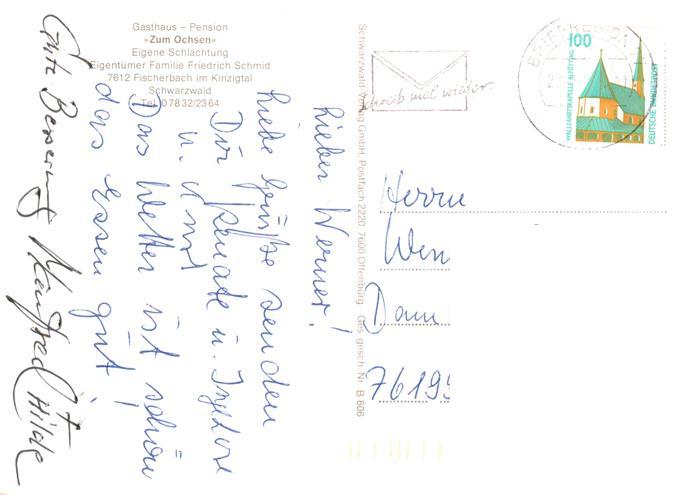 Gasthaus – Pension
»Zum Ochsen«
Eigene Schlachtung
Eigentümer Familie Friedrich Schmid
7612 Fischerbach im Kinzigtal
Schwarzwald
Tel. 07832/2364
Lieber Werner!
Liebe Grüße senden
Dir Renate u. Ingeborg
u. Kurt
Das Wetter ist schön
das Essen gut!
Gute Besserung Manfred Hilde
Schwarzwald-Verlag GmbH, Postfach 2220, 7600 Offenburg Ges. gesch. Nr. B 606
Schreib mal wieder.
BRIEFREGION
100
WALLFAHRTSKAPELLE ALTÖTTING
DEUTSCHE BUNDESPOST
Herrn
Wen
Dam
76199